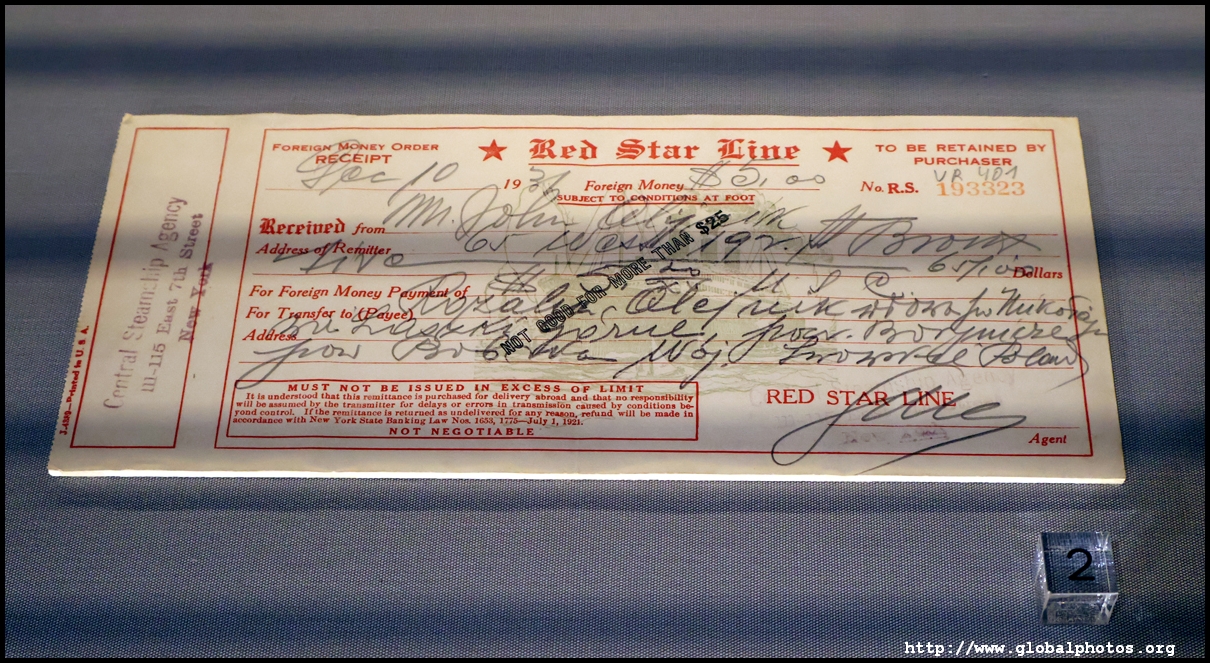 FOREIGN MONEY ORDER
RECEIPT
★ Red Star Line ★
TO BE RETAINED BY
PURCHASER
Dec 10 193
Foreign Money $5.00
SUBJECT TO CONDITIONS AT FOOT
VR 401
No. R.S. 193323
Received from Mr. John
Address of Remitter 65 West 192. St Bronx
Five 65/100 Dollars
For Foreign Money Payment of $5.00 U S C
For Transfer to (Payee) Olejnik
Address
pow
NOT GOOD FOR MORE THAN $25
MUST NOT BE ISSUED IN EXCESS OF LIMIT
It is understood that this remittance is purchased for delivery abroad and that no responsibility
will be assumed by the transmitter for delays or errors in transmission caused by conditions be-
yond control. If the remittance is returned as undelivered for any reason, refund will be made in
accordance with New York State Banking Law Nos. 1653, 1775—July 1, 1921.
NOT NEGOTIABLE
RED STAR LINE
Agent
Central Steamship Agency
111-115 East 7th Street
New York
Printed in U.S.A.
2
http://www.globalphotos.org